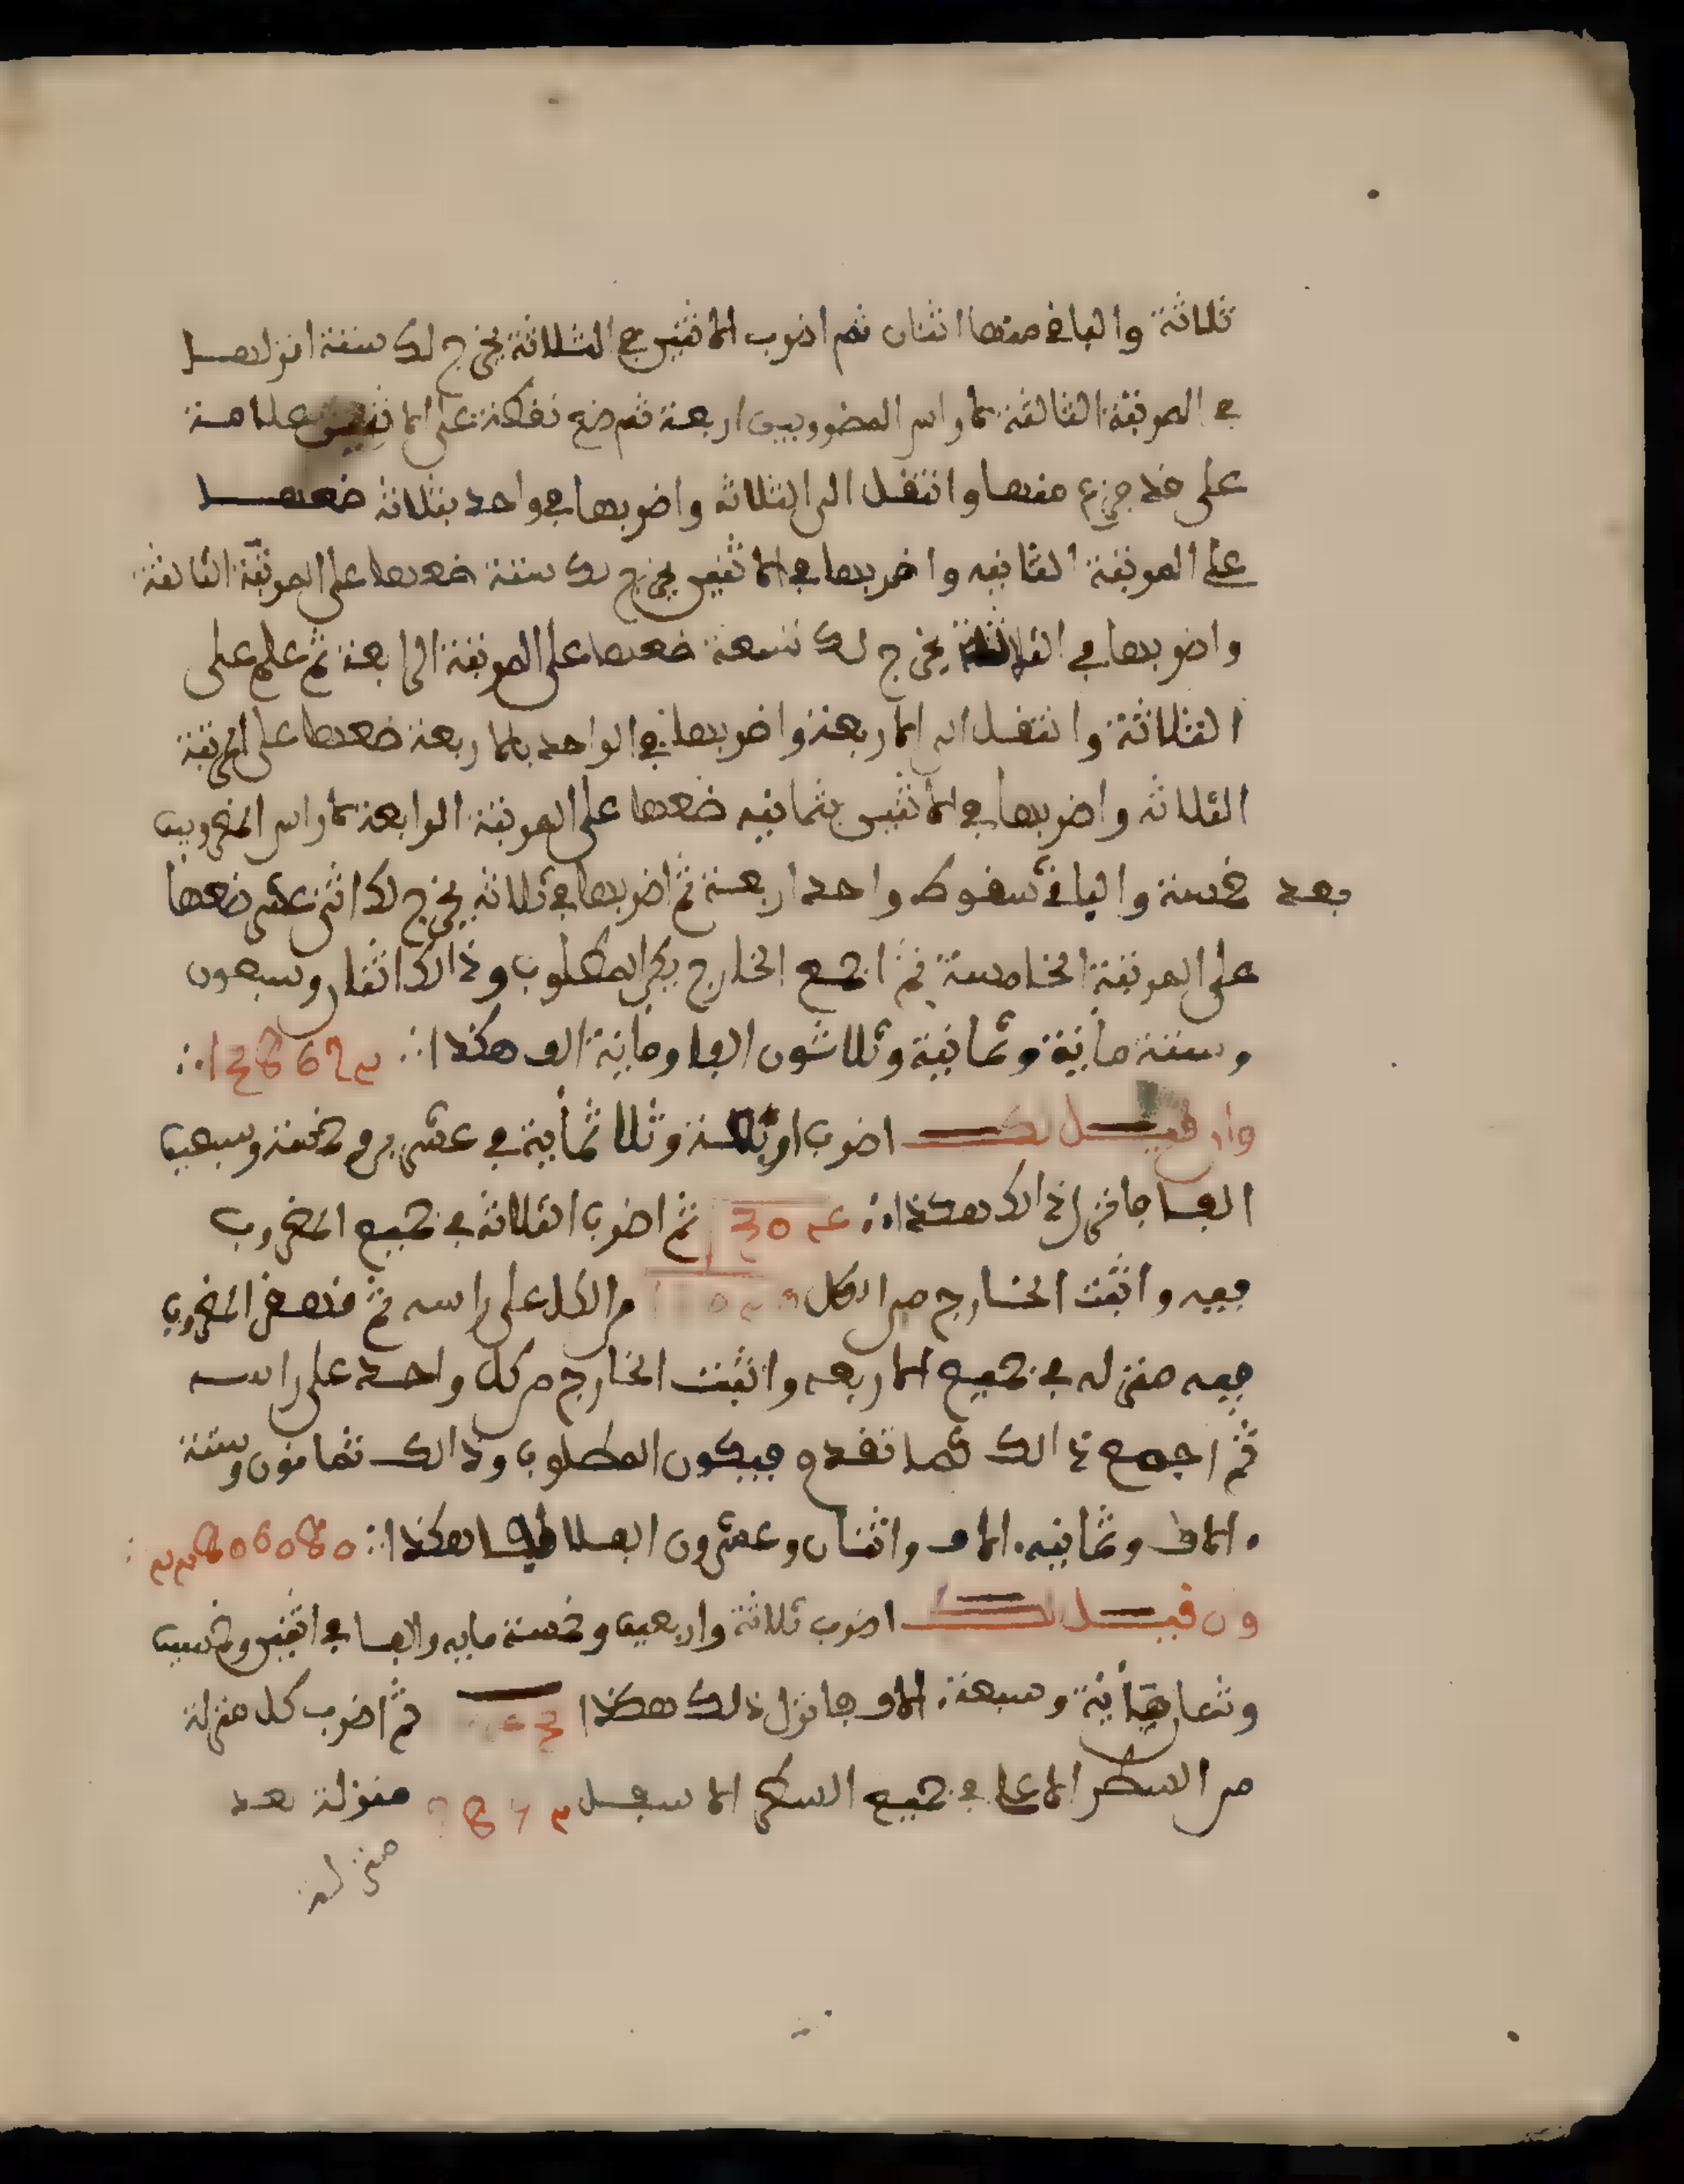 ثلاثة والباقي منها اثنان ثم اضرب الاثنين في الثلاثة يخرج لك ستة انزلها
في المرتبة الثالثة لان اس المضروبين اربعة ثم ضع نقطة على الاثنين علامة
على منها وانتقل الى الثلاثه واضربها في واحد بثلاثه ضعها
على المرتبة الثانيه واضربها في الاثنين يخرج لك ستة ضعها على المرتبة الثالثة
واضربها في الثلاثة يخرج لك تسعة ضعها على المرتبة الرابعة ثم علم على
الثلاثة وانتقل الى الاربعة واضربها في الواحد بالاربعة ضعها على المرتبة
الثلاثه واضربها في الاثنين بثمانيه ضعها على المرتبة الرابعة لان اس المضروبين
بعد خمسة والباقي سقوط واحد اربعة ثم اضربها في ثلاثه يخرج لك اثنى عشر ضعها
على المرتبة الخامسة ثم اجمع الخارج يكن المطلوب وذالك اثنان وسبعون
وستة ماية وثمانية وثلاثون الفا وماية الف هكذا ∴ 138672 ∴
وان قيل لك اضرب اربعة وثلاثماية في عشرين وخمسة وسبعين
الفا فانزل ذالك هكذا ∴ 304 ثم اضرب الثلاثه في جميع المضروب
فيه واثبت الخارج من الكل من الكل على راسه ثم المضروب
فيه منزله في جميع الاربعه واثبت الخارج من كل واحد على راسه
ثم اجمع ذالك كما تقدم فيكون المطلوب وذالك ثمانون وستة
الاف وثمانيه الاف واثنان وعشرون الفا هكذا ∴ 22806080 ∴
وان قيل لك اضرب ثلاثة واربعين وخمسة مايه والفا في اثنين وخمسين
وثمانماية وسبعة الاف فانزل ذلك هكذا ثم اضرب كل منزلة
من السطر الاعلى في جميع السطر الاسفل منزلة بعد
منزلة